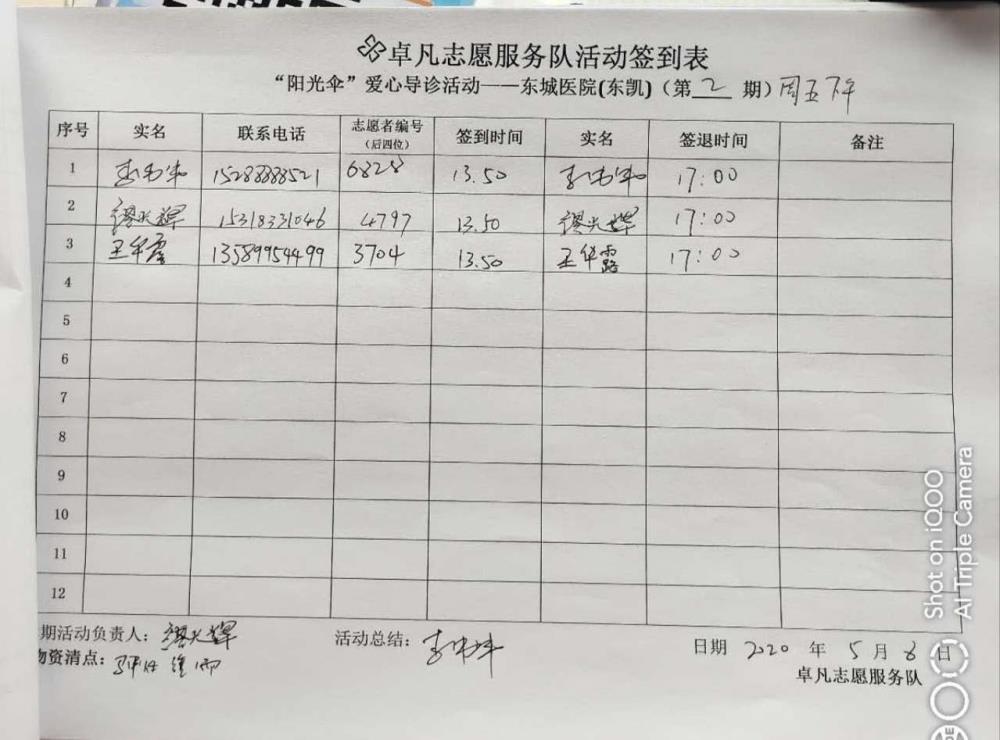 卓凡志愿服务队活动签到表
“阳光伞”爱心导诊活动——东城医院(东凯)（第 2 期）周五下午
序号 实名 联系电话 志愿者编号（后四位） 签到时间 实名 签退时间 备注
1 15288888521 6828 13.50 17:00
2 缪光辉 15318331046 4797 13.50 缪光辉 17:00
3 王华露 13589954499 3704 13.50 王华露 17:00
4
5
6
7
8
9
10
11
12
期活动负责人： 缪光辉 活动总结： 日期 2020 年 5 月 8 日
物资清点：
卓凡志愿服务队
Shot on iQOO
AI Triple Camera